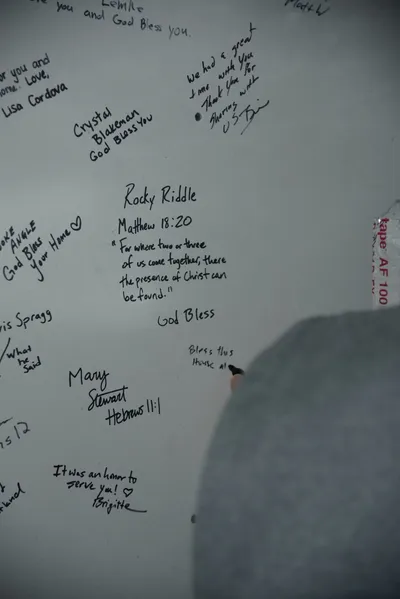 you and God Bless you.
We had a great
time with you
Thank You For
Sharing with
us
or you and
Love,
Lisa Cordova
Crystal
Blakeman
God Bless You
Rocky Riddle
Matthew 18:20
"For where two or three
of us come together, there
the presence of Christ can
be found."
God Bless
ANGLE
God Bless
your Home ♡
tape AF 100
ris Spragg
what he
Said
Bless this
House
Mary
Stewart
Hebrews 11:1
It was an honor to
serve you! ♡
Brigitte